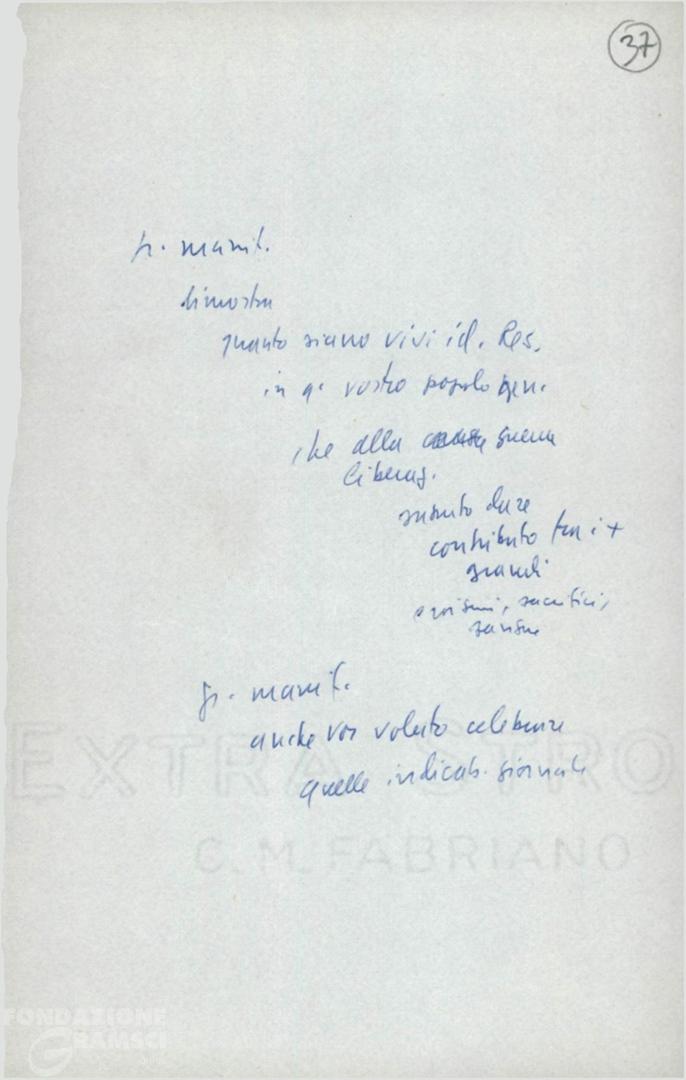 37
manif.
dimostra
quanto siano vivi id. Res.
in q. vostro popolo gen.
che alla guerra
liberaz.
saputo dare
contributo tra i +
grandi
eroismi, sacrifici,
sangue
gr. manif.
anche voi voluto celebrare
quelle indicab. giornate
EXTRA STRO
C. M. FABRIANO
FONDAZIONE
GRAMSCI